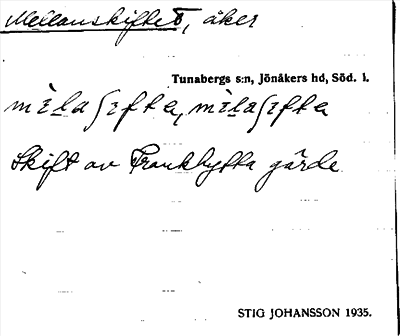 Mellanskiftet, åker
Tunabergs s:n, Jönåkers hd, Söd. l.
Skift av Frankhytta gärde
STIG JOHANSSON 1935.